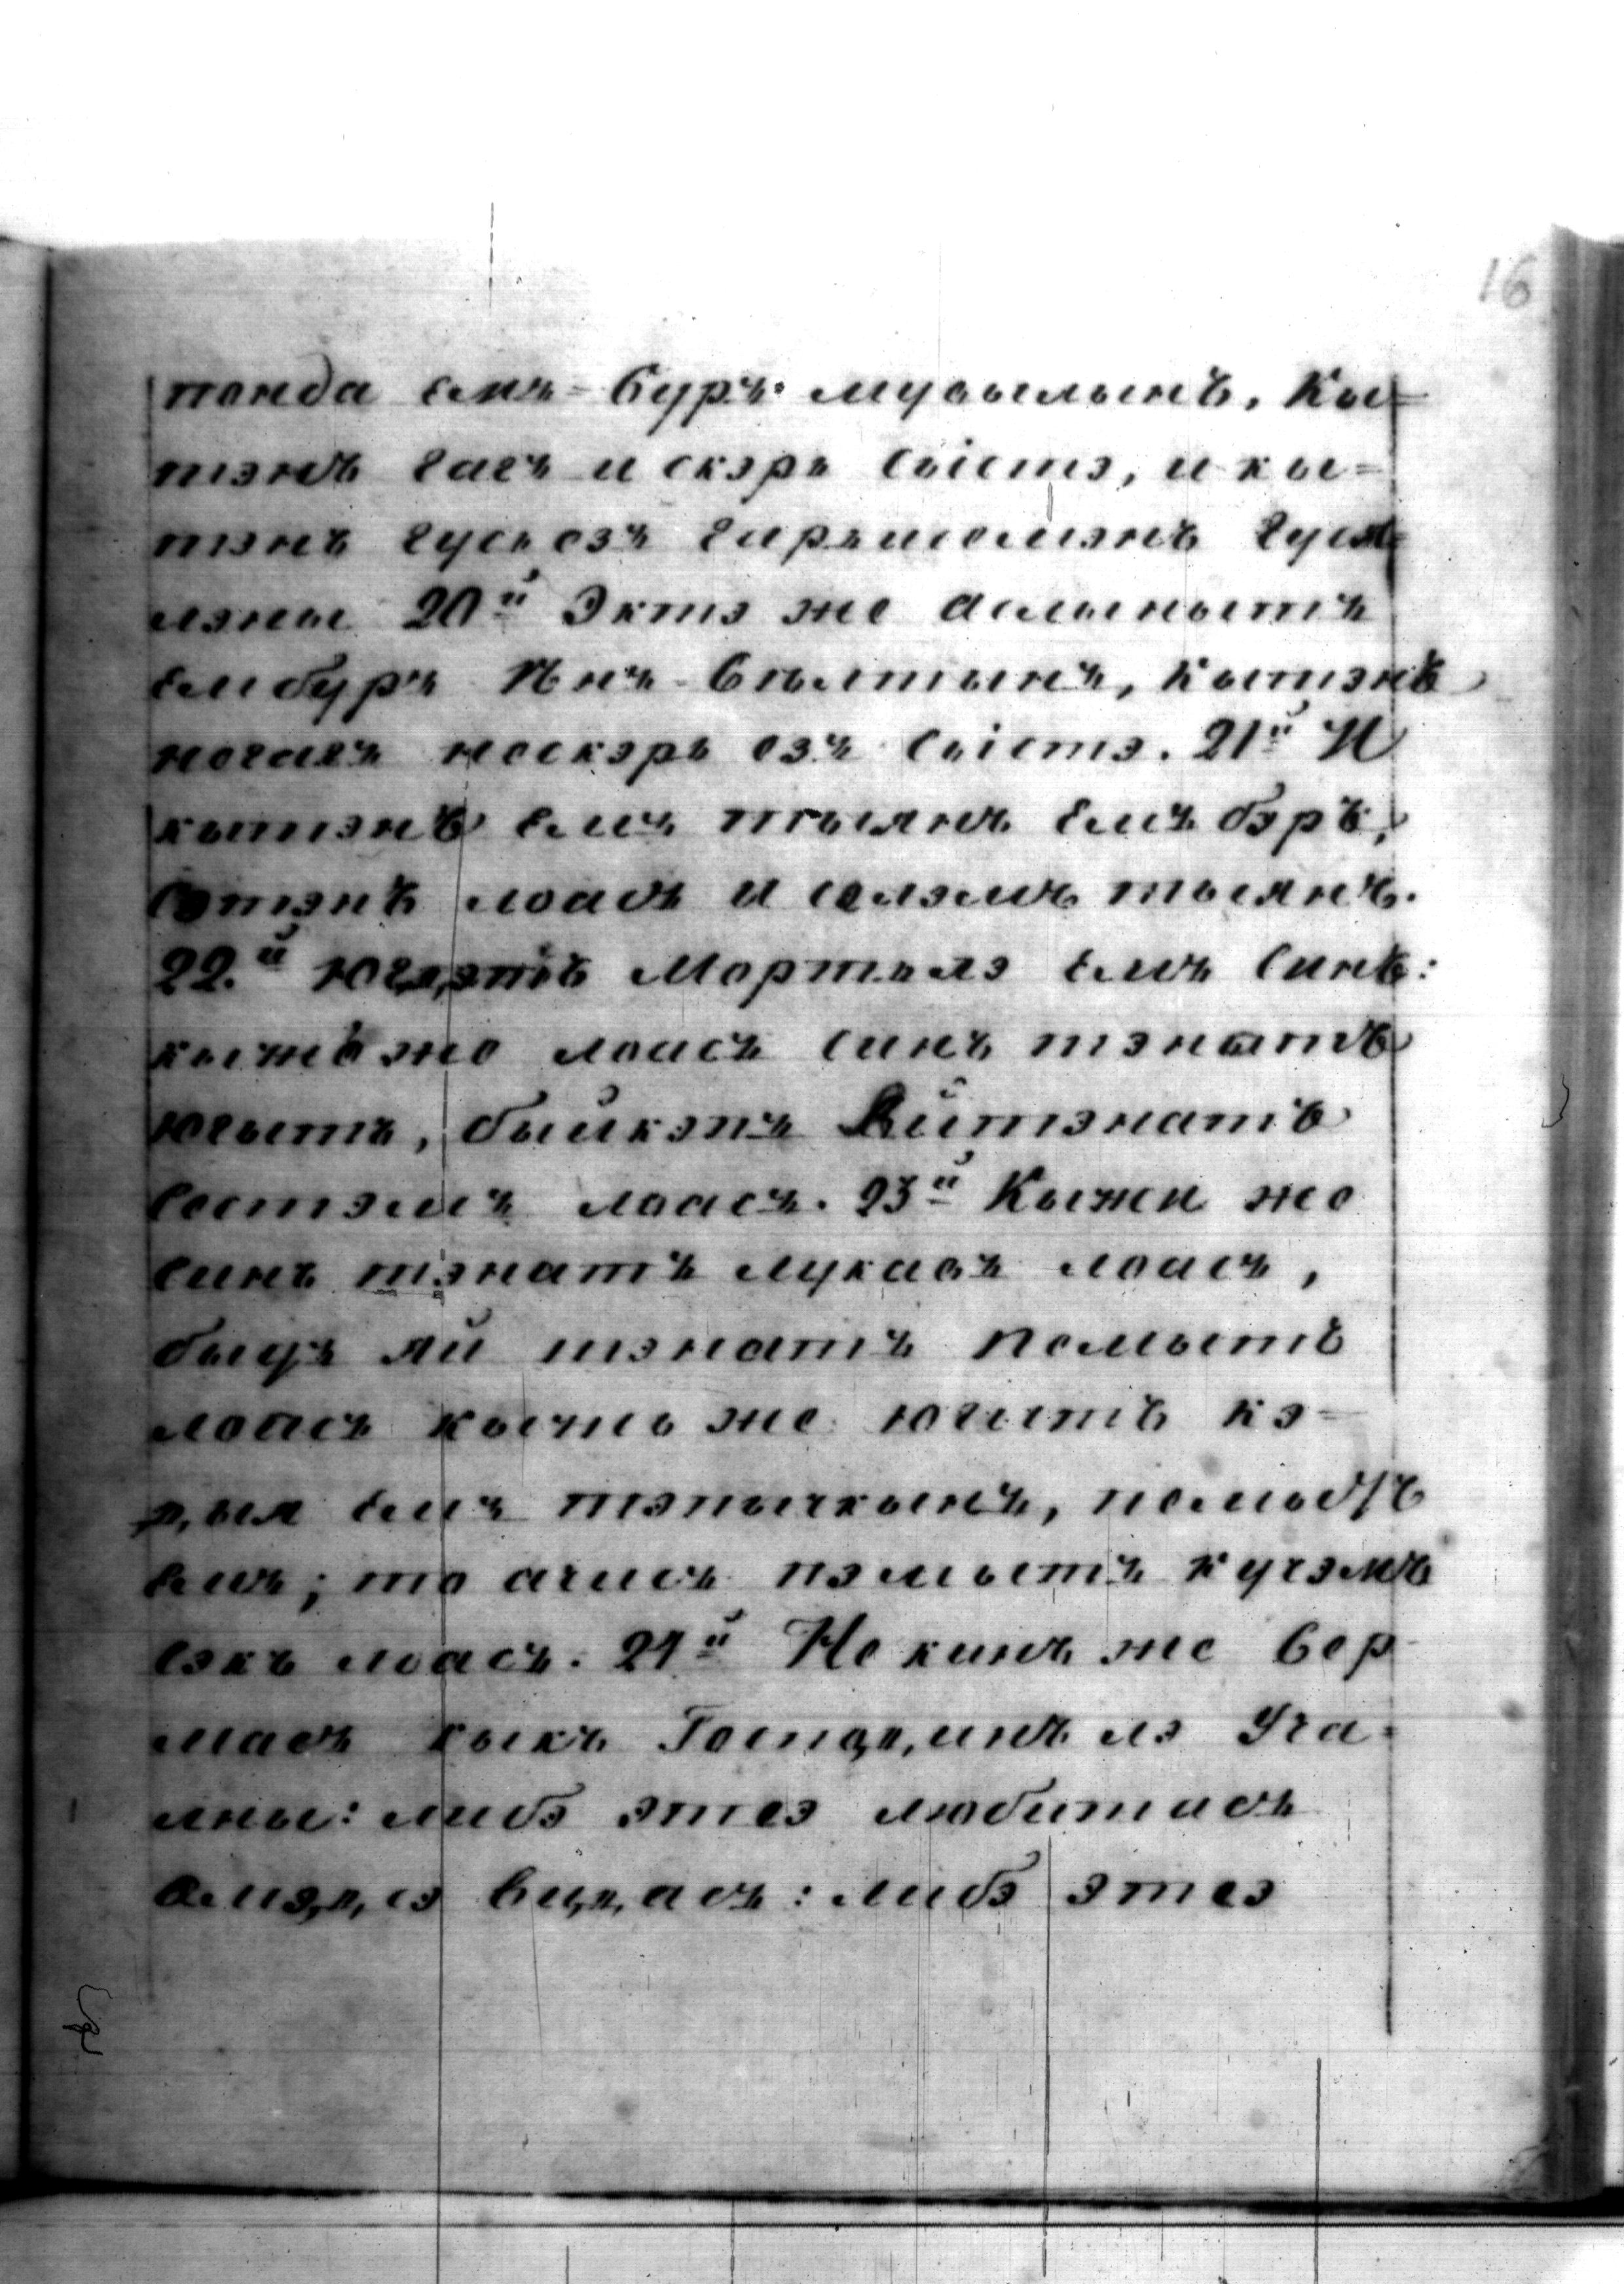 16
понда емъ-буръ мувылынъ. Кы=
тэнъ гагъ и скэръ сыістэ, и кы=
тэнъ гусь езъ гиръшомэнъ гуся=
лэны 20й Эктэ же аслыныть
ем буръ Ѣнъ-вылтынъ, кытэнъ
негагъ нескэръ езъ сыістэ. 21й И
кытэнъ емъ тыянъ емъ бэръ,
сэтэнъ лоасъ и селэмъ тыянъ.
22.й Югдэтъ Мортълэ емъ синъ:
кыжъ же лоасъ синъ тэнатъ
югытъ, быйкэпъ Яйтэнатъ
сестэмъ лоасъ. 23й Кыжи же
синъ тэнатъ лукавъ лоасъ,
быдъ яй тэнатъ пемытъ
лоасъ кычъ же югытъ кэ=
д,ыя емъ тэнычкынъ, пемытъ
емъ; то ачисъ пэмытъ кучэмъ
сэкъ лоасъ. 24й Не кинъ же вер
масъ кыкъ Господ,инъ лэ Уча=
лны: либэ этеэ любитасъ
амэд,сэ вид,асъ: либэ этеэ